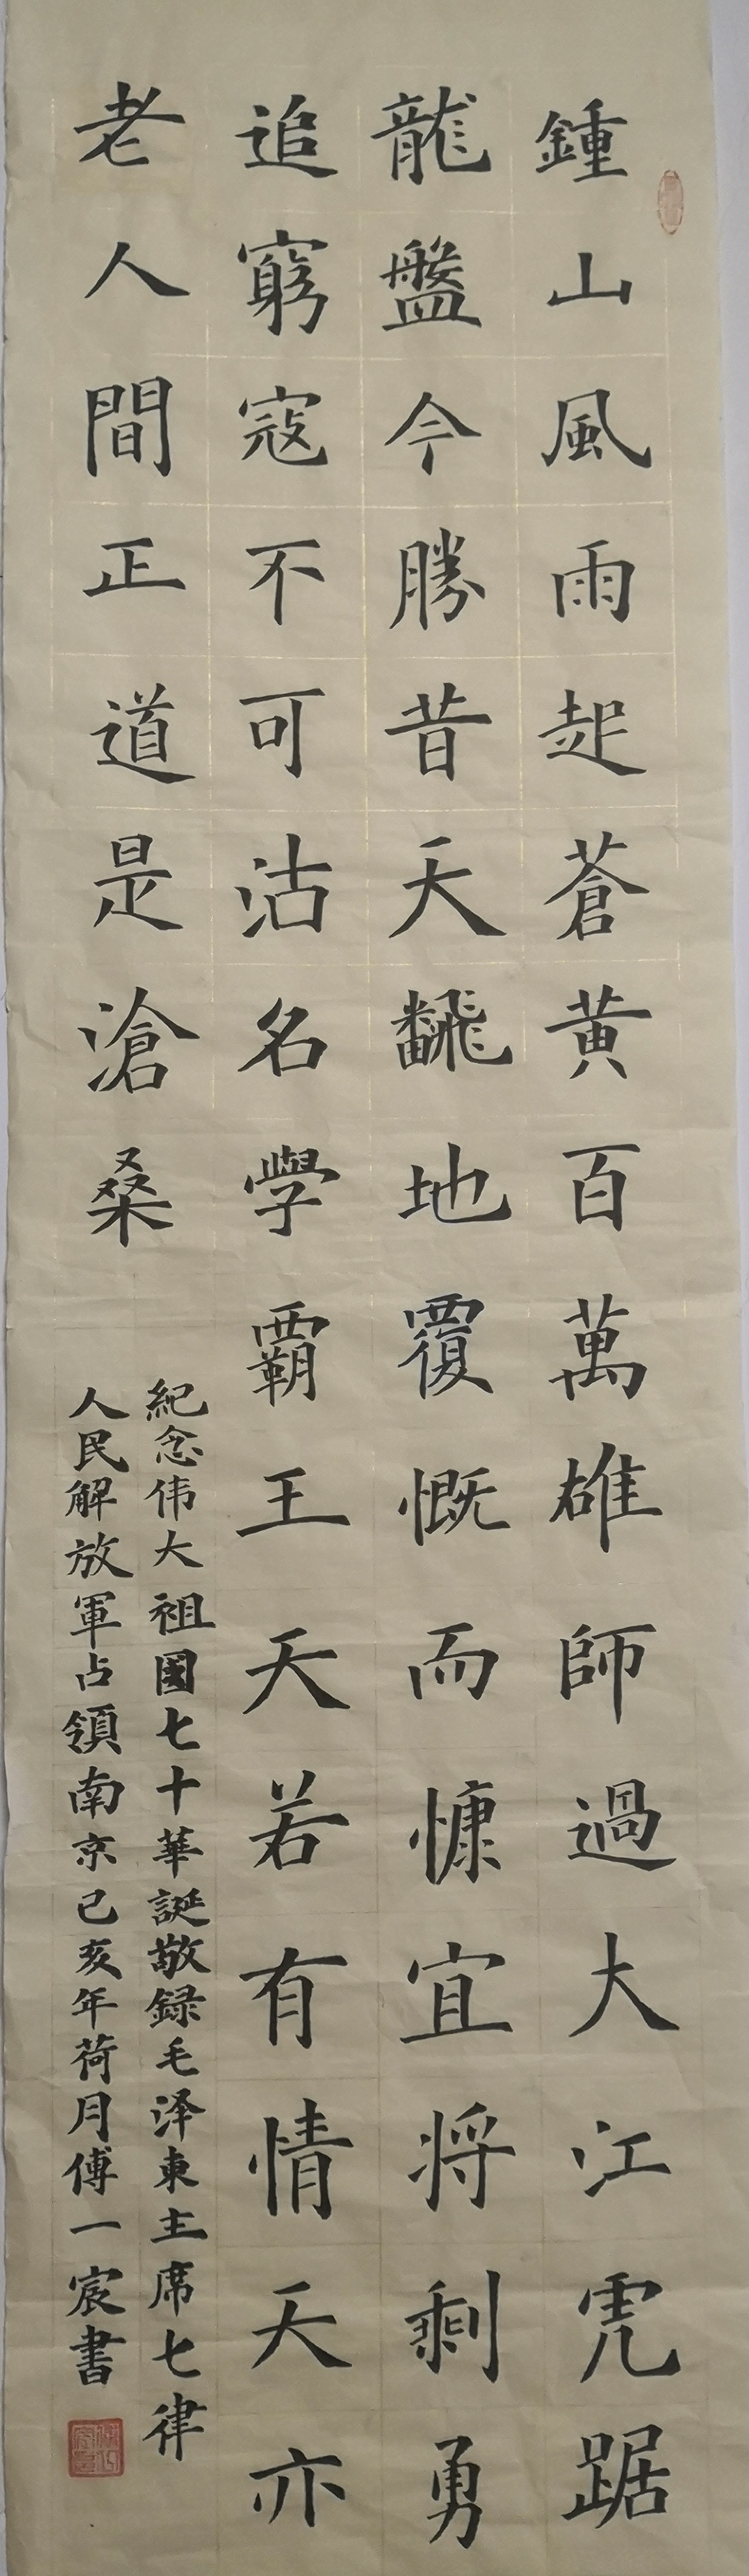 鍾山風雨起蒼黄百萬雄師過大江虎踞
龍盤今勝昔天飜地覆慨而慷宜将剩勇
追窮寇不可沽名學霸王天若有情天亦
老人間正道是滄桑
紀念伟大祖國七十華誕敬録毛泽東主席七律
人民解放軍占領南京己亥年荷月傅一宸書